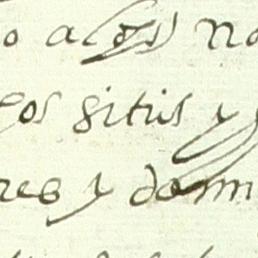 o a los no
os sitius y
res y domi